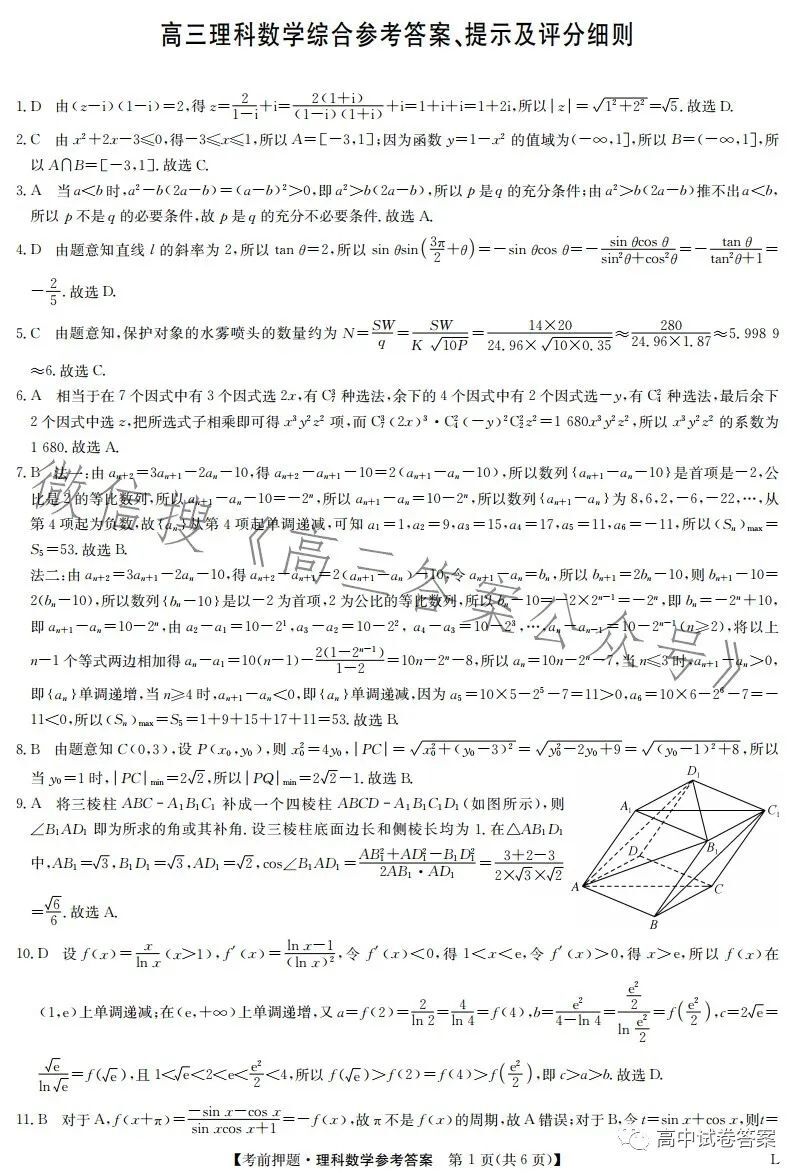 高三理科数学综合参考答案、提示及评分细则
1. D 由(z-i)(1-i)=2,得 z=2/(1-i)+i=2(1+i)/((1-i)(1+i))+i=1+i+i=1+2i,所以|z|=√(1²+2²)=√5. 故选 D.
2. C 由 x²+2x-3≤0,得-3≤x≤1,所以 A=[-3,1];因为函数 y=1-x² 的值域为(-∞,1],所以 B=(-∞,1],所
以 A∩B=[-3,1]. 故选 C.
3. A 当 a<b 时,a²-b(2a-b)=(a-b)²>0,即 a²>b(2a-b),所以 p 是 q 的充分条件;由 a²>b(2a-b)推不出 a<b,
所以 p 不是 q 的必要条件,故 p 是 q 的充分不必要条件. 故选 A.
4. D 由题意知直线 l 的斜率为 2,所以 tan θ=2,所以 sin θsin(3π/2+θ)=-sin θcos θ=-sin θcos θ/(sin²θ+cos²θ)=-tan θ/(tan²θ+1)=
-2/5. 故选 D.
5. C 由题意知,保护对象的水雾喷头的数量约为 N=SW/q=SW/(K √(10P))=14×20/(24.96×√(10×0.35))≈280/(24.96×1.87)≈5.998 9
≈6. 故选 C.
6. A 相当于在 7 个因式中有 3 个因式选 2x,有 C₇³ 种选法,余下的 4 个因式中有 2 个因式选-y,有 C₄² 种选法,最后余下
2 个因式中选 z,把所选式子相乘即可得 x³y²z² 项,而 C₇³(2x)³·C₄²(-y)²C₂²z²=1 680x³y²z²,所以 x³y²z² 的系数为
1 680. 故选 A.
7. B 法一:由 aₙ₊₂=3aₙ₊₁-2aₙ-10,得 aₙ₊₂-aₙ₊₁-10=2(aₙ₊₁-aₙ-10),所以数列{aₙ₊₁-aₙ-10}是首项是-2,公
比是 2 的等比数列,所以 aₙ₊₁-aₙ-10=-2ⁿ,所以 aₙ₊₁-aₙ=10-2ⁿ,所以数列{aₙ₊₁-aₙ}为 8,6,2,-6,-22,…,从
第 4 项起为负数,故{aₙ}从第 4 项起单调递减,可知 a₁=1,a₂=9,a₃=15,a₄=17,a₅=11,a₆=-11,所以(Sₙ)max=
S₅=53. 故选 B.
法二:由 aₙ₊₂=3aₙ₊₁-2aₙ-10,得 aₙ₊₂-aₙ₊₁=2(aₙ₊₁-aₙ)-10,令 aₙ₊₁-aₙ=bₙ,所以 bₙ₊₁=2bₙ-10,则 bₙ₊₁-10=
2(bₙ-10),所以数列{bₙ-10}是以-2 为首项,2 为公比的等比数列,所以 bₙ-10=-2×2ⁿ⁻¹=-2ⁿ,即 bₙ=-2ⁿ+10,
即 aₙ₊₁-aₙ=10-2ⁿ,由 a₂-a₁=10-2¹,a₃-a₂=10-2²,a₄-a₃=10-2³,…,aₙ-aₙ₋₁=10-2ⁿ⁻¹(n≥2),将以上
n-1 个等式两边相加得 aₙ-a₁=10(n-1)-2(1-2ⁿ⁻¹)/(1-2)=10n-2ⁿ-8,所以 aₙ=10n-2ⁿ-7,当 n≤3 时,aₙ₊₁-aₙ>0,
即{aₙ}单调递增,当 n≥4 时,aₙ₊₁-aₙ<0,即{aₙ}单调递减,因为 a₅=10×5-2⁵-7=11>0,a₆=10×6-2⁶-7=-
11<0,所以(Sₙ)max=S₅=1+9+15+17+11=53. 故选 B.
8. B 由题意知 C(0,3),设 P(x₀,y₀),则 x₀²=4y₀,|PC|=√(x₀²+(y₀-3)²)=√(y₀²-2y₀+9)=√((y₀-1)²+8),所以
当 y₀=1 时,|PC|min=2√2,所以|PQ|min=2√2-1. 故选 B.
9. A 将三棱柱 ABC-A₁B₁C₁ 补成一个四棱柱 ABCD-A₁B₁C₁D₁(如图所示),则
∠B₁AD₁ 即为所求的角或其补角. 设三棱柱底面边长和侧棱长均为 1. 在△AB₁D₁
中,AB₁=√3,B₁D₁=√3,AD₁=√2,cos∠B₁AD₁=(AB₁²+AD₁²-B₁D₁²)/(2AB₁·AD₁)=(3+2-3)/(2×√3×√2)
=√6/6. 故选 A.
D₁
A₁
C₁
B₁
D
A
C
B
10. D 设 f(x)=x/ln x(x>1),f′(x)=(ln x-1)/(ln x)²,令 f′(x)<0,得 1<x<e,令 f′(x)>0,得 x>e,所以 f(x)在
(1,e)上单调递减;在(e,+∞)上单调递增,又 a=f(2)=2/ln 2=4/ln 4=f(4),b=e²/(4-ln 4)=(e²/2)/(ln e²/2)=f(e²/2),c=2√e=
√e/ln√e=f(√e),且 1<√e<2<e<e²/2<4,所以 f(√e)>f(2)=f(4)>f(e²/2),即 c>a>b. 故选 D.
11. B 对于 A,f(x+π)=(-sin x-cos x)/(sin xcos x+1)=-f(x),故 π 不是 f(x)的周期,故 A 错误;对于 B,令 t=sin x+cos x,则 t=
【考前押题·理科数学参考答案 第 1 页(共 6 页)】
L
微信搜《高三答案公众号》
高中试卷答案